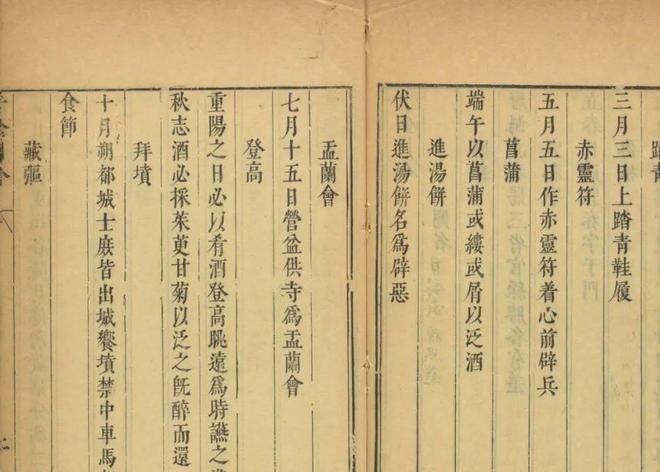 踏青
三月三日上踏青鞋履
赤靈符
五月五日作赤靈符着心前辟兵
菖蒲
端午以菖蒲或縷或屑以泛酒
進湯餅
伏日進湯餅名爲辟惡
盂蘭會
七月十五日營盆供寺爲盂蘭會
登高
重陽之日必以肴酒登高眺遠爲時讌之
秋志酒必採茱萸甘菊以泛之旣醉而還
拜墳
十月朔都城士庶皆出城饗墳禁中車馬
食節
藏彄